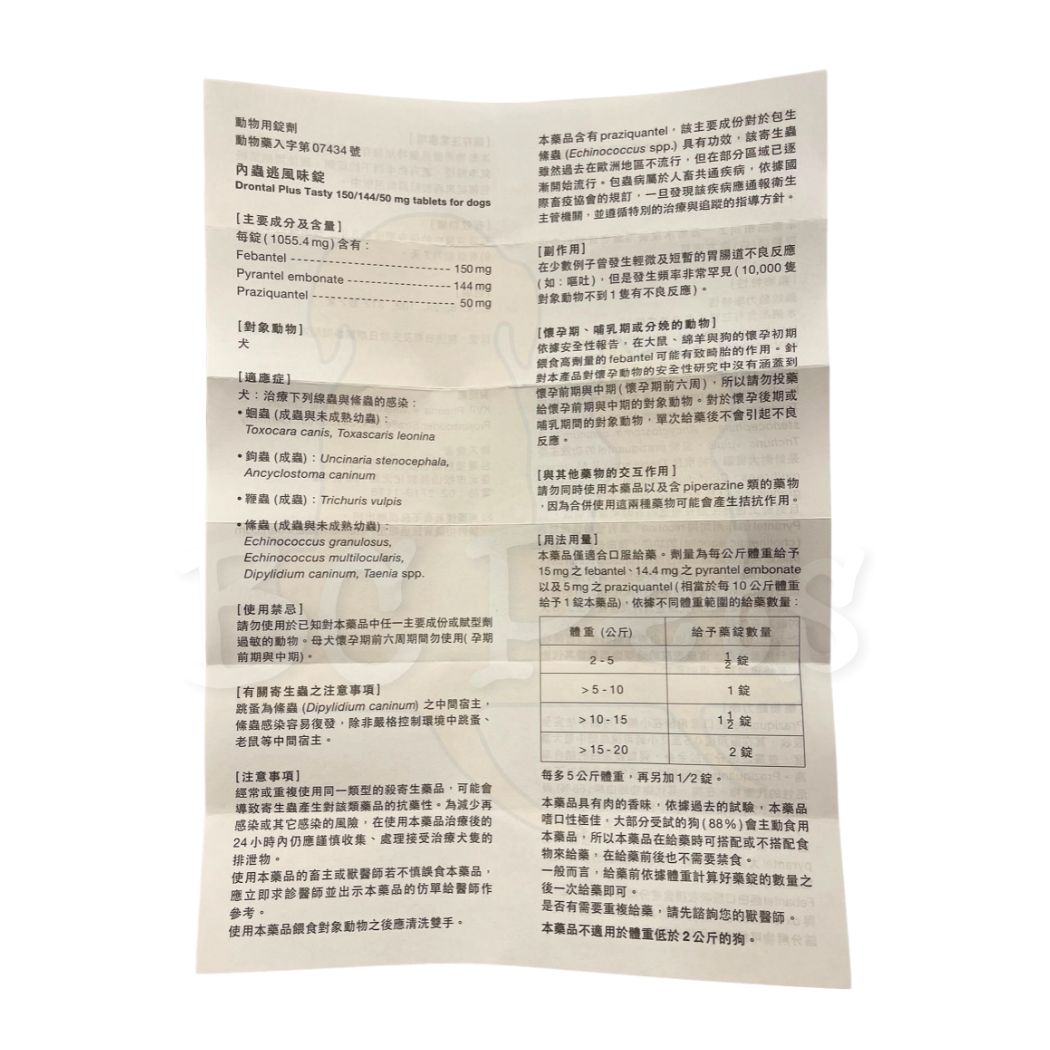 動物用錠劑
動物藥入字第07434號
內蟲逃風味錠
Drontal Plus Tasty 150/144/50 mg tablets for dogs
[主要成分及含量]
每錠(1055.4mg)含有：
Febantel ---------------------------- 150 mg
Pyrantel embonate ------------------ 144 mg
Praziquantel ------------------------- 50 mg
[對象動物]
犬
[適應症]
犬：治療下列線蟲與絛蟲的感染：
• 蛔蟲 (成蟲與未成熟幼蟲)：
Toxocara canis, Toxascaris leonina
• 鉤蟲 (成蟲)：Uncinaria stenocephala,
Ancyclostoma caninum
• 鞭蟲 (成蟲)：Trichuris vulpis
• 絛蟲 (成蟲與未成熟幼蟲)：
Echinococcus granulosus,
Echinococcus multilocularis,
Dipylidium caninum, Taenia spp.
[使用禁忌]
請勿使用於已知對本藥品中任一主要成份或賦型劑
過敏的動物。母犬懷孕期前六周期間勿使用(孕期
前期與中期)。
[有關寄生蟲之注意事項]
跳蚤為絛蟲 (Dipylidium caninum) 之中間宿主，
絛蟲感染容易復發，除非嚴格控制環境中跳蚤、
老鼠等中間宿主。
[注意事項]
經常或重複使用同一類型的殺寄生藥品，可能會
導致寄生蟲產生對該類藥品的抗藥性。為減少再
感染或其它感染的風險，在使用本藥品治療後的
24小時內仍應謹慎收集、處理接受治療犬隻的
排泄物。
使用本藥品的畜主或獸醫師若不慎誤食本藥品，
應立即求診醫師並出示本藥品的仿單給醫師作
參考。
使用本藥品餵食對象動物之後應清洗雙手。
本藥品含有praziquantel，該主要成份對於包生
絛蟲 (Echinococcus spp.) 具有功效，該寄生蟲
雖然過去在歐洲地區不流行，但在部分區域已逐
漸開始流行。包蟲病屬於人畜共通疾病，依據國
際畜疫協會的規訂，一旦發現該疾病應通報衛生
主管機關，並遵循特別的治療與追蹤的指導方針。
[副作用]
在少數例子曾發生輕微及短暫的胃腸道不良反應
(如：嘔吐)，但是發生頻率非常罕見(10,000隻
對象動物不到1隻有不良反應)。
[懷孕期、哺乳期或分娩的動物]
依據安全性報告，在大鼠、綿羊與狗的懷孕初期
餵食高劑量的febantel可能有致畸胎的作用。針
對本產品對懷孕動物的安全性研究中沒有涵蓋到
懷孕前期與中期(懷孕期前六周)，所以請勿投藥
給懷孕前期與中期的對象動物。對於懷孕後期或
哺乳期間的對象動物，單次給藥後不會引起不良
反應。
[與其他藥物的交互作用]
請勿同時使用本藥品以及含piperazine類的藥物
，因為合併使用這兩種藥物可能會產生拮抗作用。
[用法用量]
本藥品僅適合口服給藥。劑量為每公斤體重給予
15mg之febantel、14.4mg之pyrantel embonate
以及5mg之praziquantel(相當於每10公斤體重
給予1錠本藥品)，依據不同體重範圍的給藥數量：
體重 (公斤) 給予藥錠數量
2 - 5 ½ 錠
> 5 - 10 1 錠
> 10 - 15 1½ 錠
> 15 - 20 2 錠
每多5公斤體重，再另加1/2錠。
本藥品具有肉的香味，依據過去的試驗，本藥品
嗜口性極佳，大部分受試的狗(88%)會主動食用
本藥品，所以本藥品在給藥時可搭配或不搭配食
物來給藥，在給藥前後也不需要禁食。
一般而言，給藥前依據體重計算好藥錠的數量之
後一次給藥即可。
是否有需要重複給藥，請先諮詢您的獸醫師。
本藥品不適用於體重低於2公斤的狗。